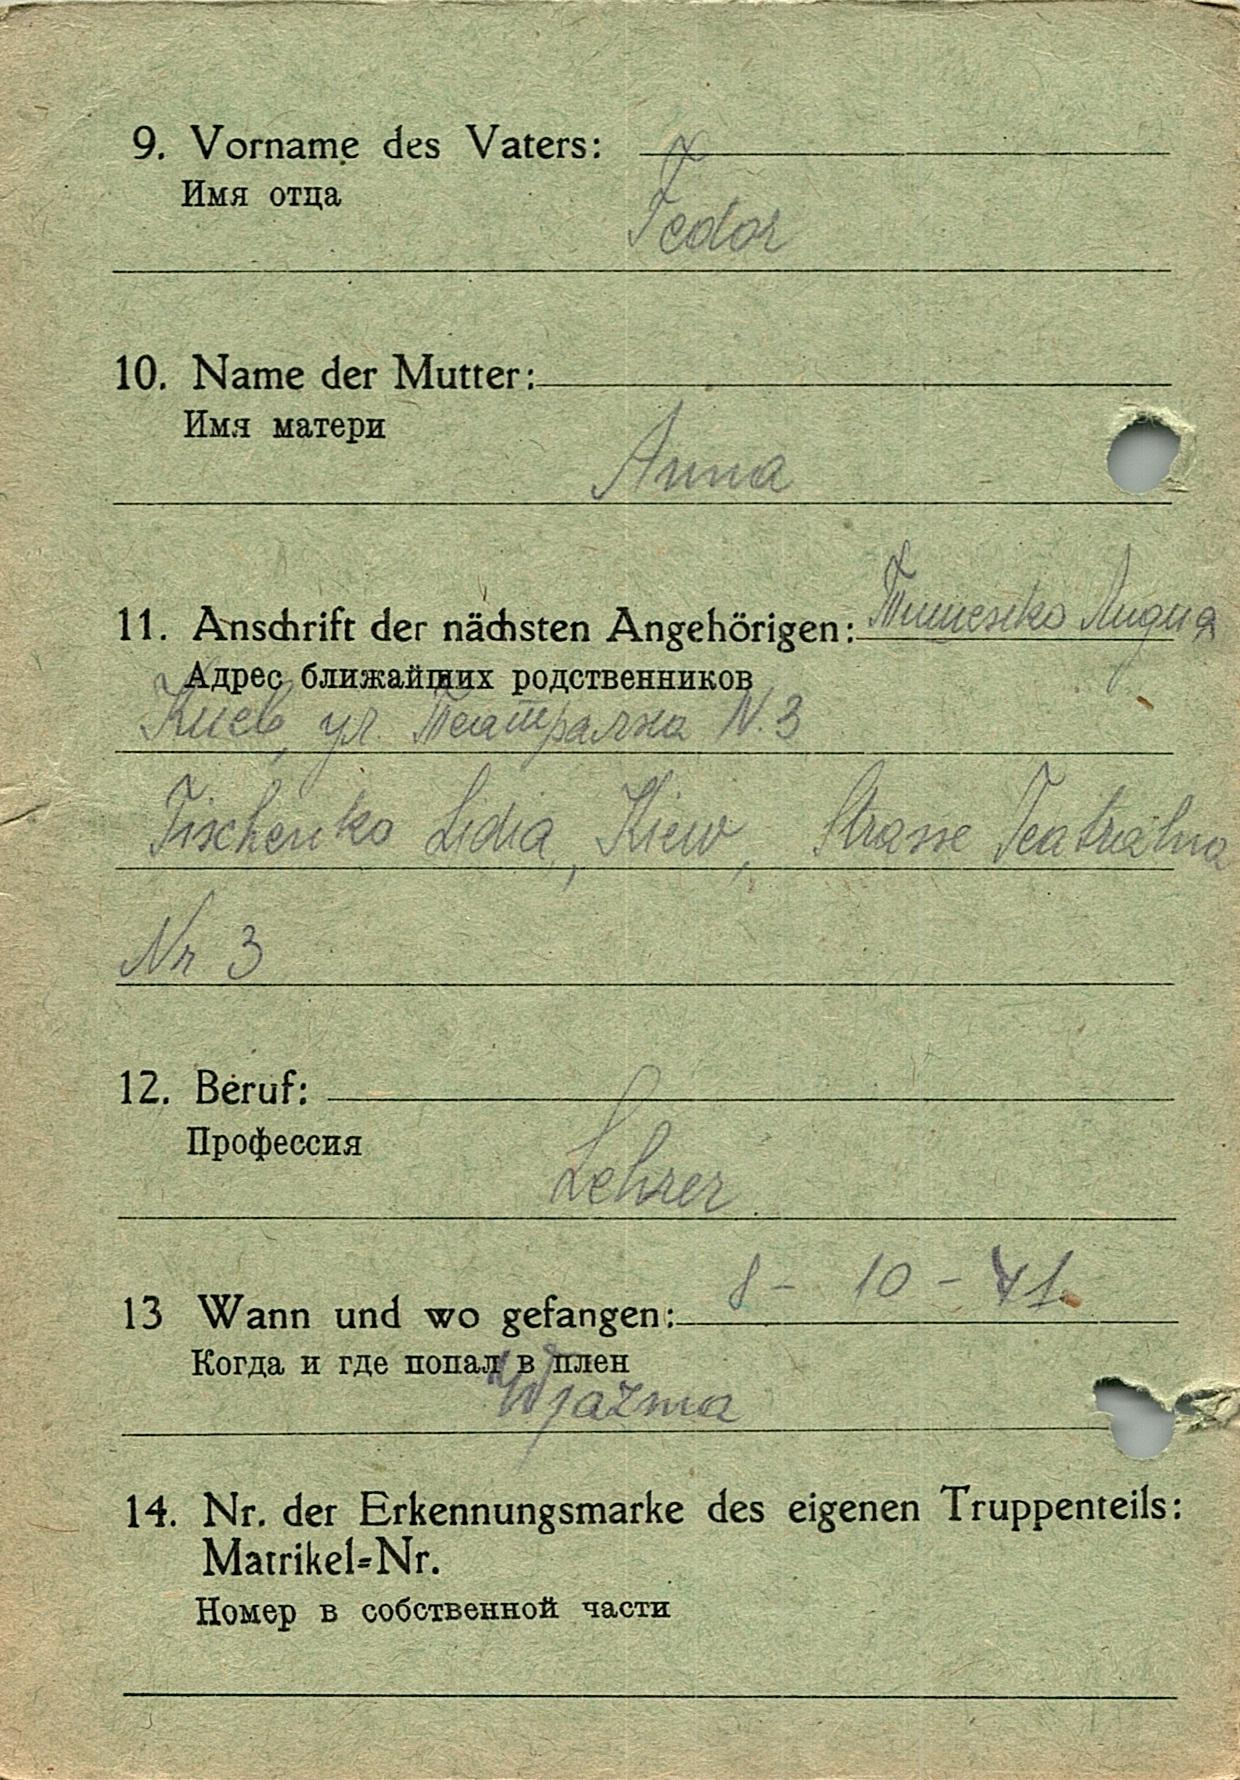 9. Vorname des Vaters:
Имя отца
Fedor
10. Name der Mutter:
Имя матери
Anna
11. Anschrift der nächsten Angehörigen: Тищенко Лидия
Адрес ближайших родственников
Киев, ул. Театрална N. 3
Tischenko Lidia, Kiew, Strasse Teatralna
Nr 3
12. Beruf:
Профессия
Lehrer
13 Wann und wo gefangen: 8 - 10 - 41.
Когда и где попал в плен
Wjazma
14. Nr. der Erkennungsmarke des eigenen Truppenteils:
Matrikel=Nr.
Номер в собственной части